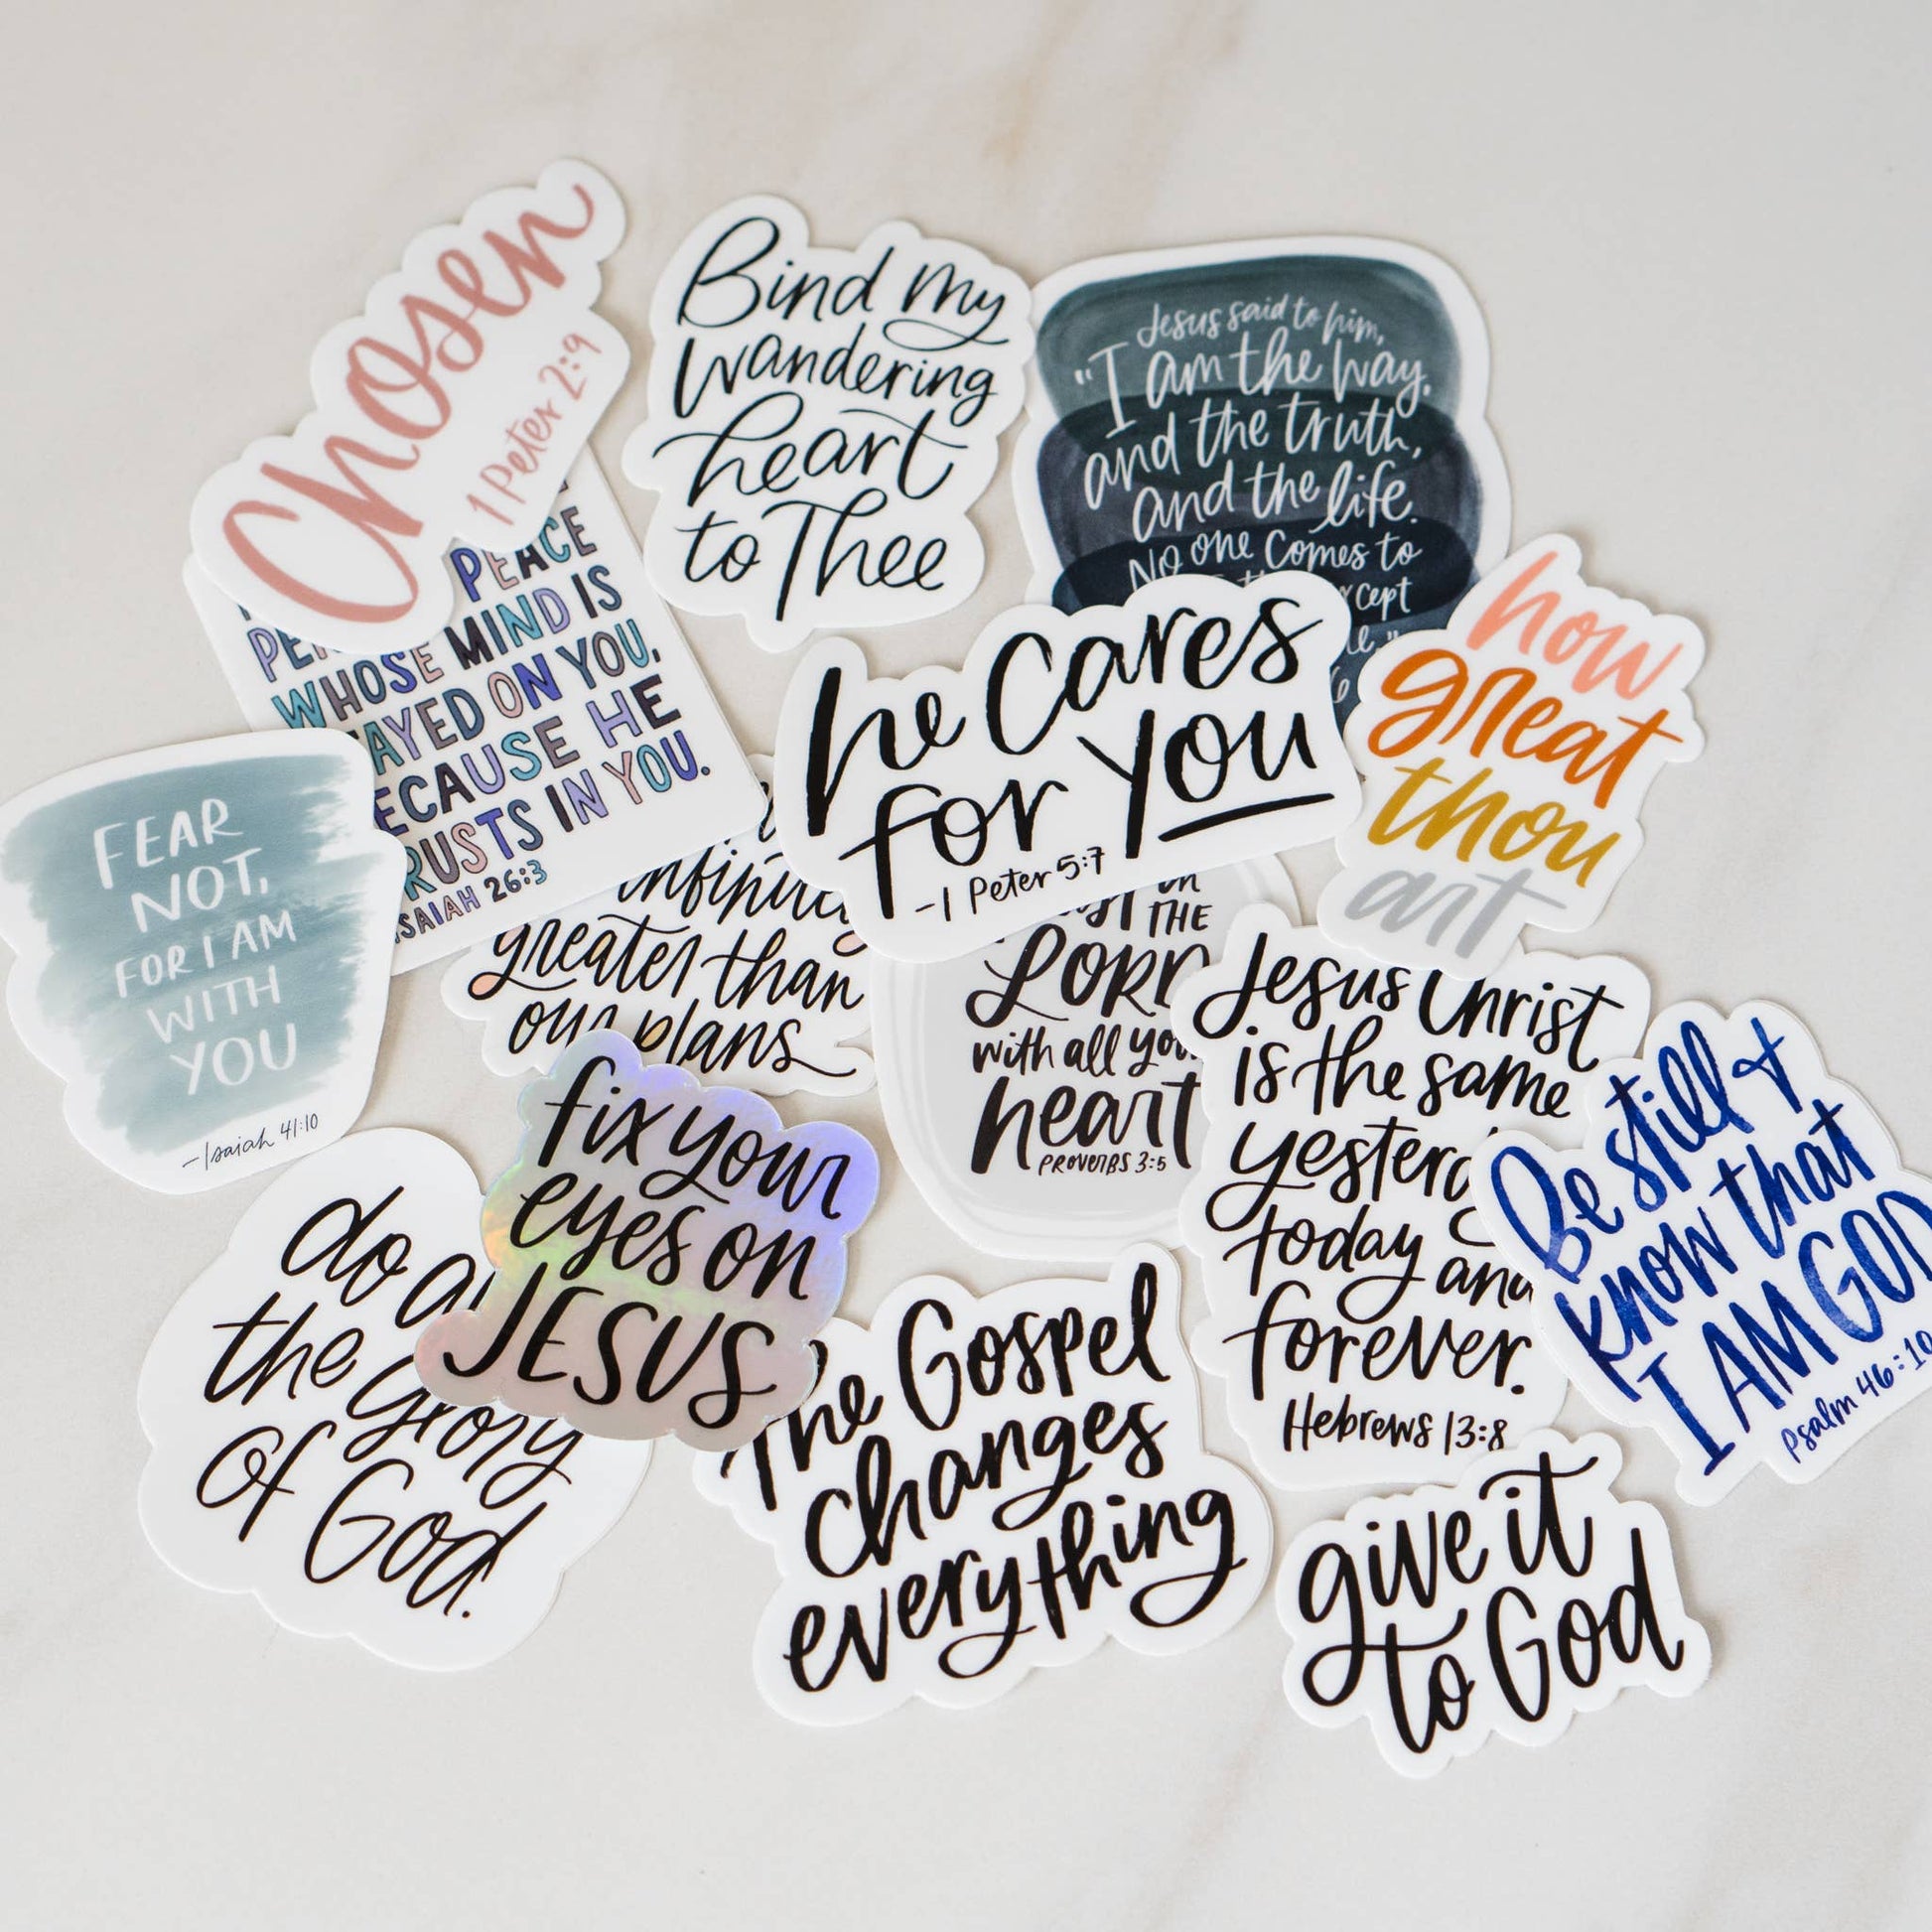 Chosen
1 Peter 2:9
Bind my
wandering
heart
to Thee
Jesus said to him,
"I am the way,
and the truth,
and the life.
No one comes to
PEACE
WHOSE MIND IS
ON YOU,
HE
IN YOU.
26:3
he cares
for you
-1 Peter 5:7
how
great
thou
art
FEAR
NOT,
FOR I AM
WITH
YOU
-Isaiah 41:10
greater than
our plans
THE
LORD
with all
heart
PROVERBS 3:5
Jesus Christ
is the same
today and
forever.
Hebrews 13:8
Be still &
know that
I AM GOD
Psalm 46:10
do
the glory
of God.
fix your
eyes on
JESUS
The Gospel
changes
everything
give it
to God